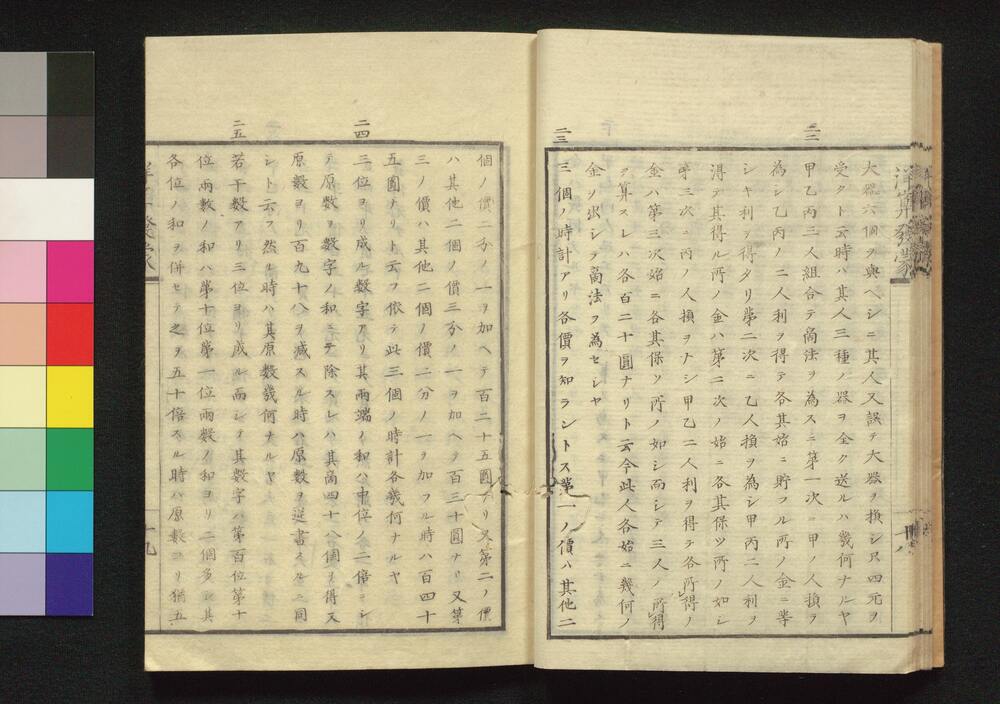 大器六個ヲ與ヘシニ其人又誤テ大器ヲ損シ只四元ヲ
受クト云時ハ其人三種ノ器ヲ全ク送ルハ幾何ナルヤ
二二
甲乙丙三人組合テ商法ヲ為スニ第一次ニ甲ノ人損ヲ
為シ乙丙ノ二人利ヲ得テ各其始ニ貯フル所ノ金ニ等
シキ利ヲ得タリ第二次ニ乙人損ヲ為シ甲丙二人利ヲ
得テ其得ル所ノ金ハ第二次ノ始ニ各其保ツ所ノ如シ
第三次ニ丙ノ人損ヲナシ甲乙二人利ヲ得テ各所得ノ
金ハ第三次始ニ各其保ツ所ノ如シ而シテ三人ノ所得
ヲ算スレハ各百二十圓ナリト云今此人各始ニ幾何ノ
金ヲ出シテ商法ヲ為セシヤ
二三
三個ノ時計アリ各價ヲ知ラントス第一ノ價ハ其他二
個ノ價二分ノ一ヲ加ヘテ百二十五圓ナリ又第二ノ價
ハ其他二個ノ價三分ノ一ヲ加ヘテ百三十圓ナリ又第
三ノ價ハ其他二個ノ價二分ノ一ヲ加フル時ハ百四十
五圓ナリト云フ依テ此三個ノ時計各幾何ナルヤ
二四
三位ヨリ成ル数字アリ其両端ノ和ハ中位ノ二倍ニシ
テ原数ヲ数字ノ和ニテ除スレハ其商四十八個ヲ得又
原数ヨリ百九十八ヲ减スル時ハ原数ヲ逆書スルニ同
シト云フ然ル時ハ其原数幾何ナルヤ
二五
若干数アリ三位ヨリ成ル而シテ其数字ハ第百位第十
位兩数ノ和ハ第十位第一位兩数ノ和ヨリ二個多シ其
各位ノ和ヲ併セテ之ヲ五十倍スル時ハ原数ヨリ猶五
洋算發蒙
十八
十九